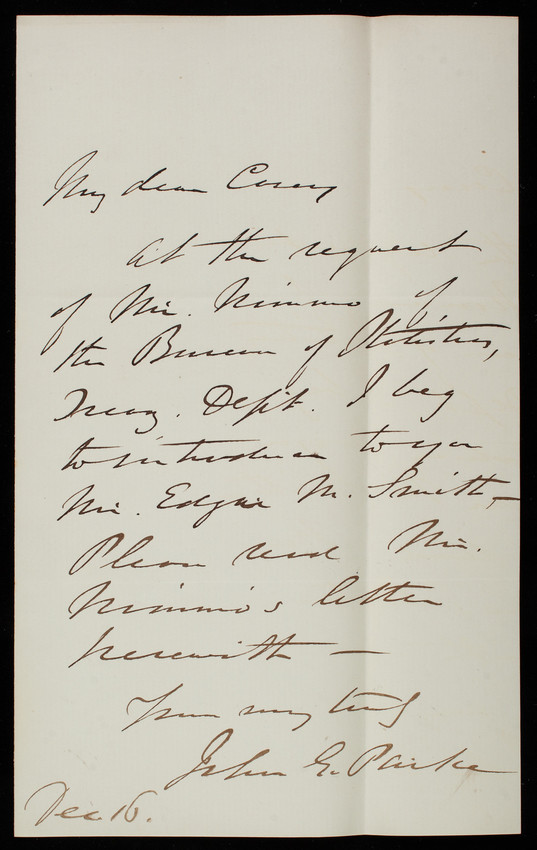 My dear Casey
At the request
of Mr. Nimmo of
the Bureau of Statistics,
Treas. Dept. I beg
to introduce to you
Mr. Edgar M. Smith, –
Please read Mr.
Nimmo's letter
herewith –
Yours very truly
John G. Parke
Dec 16.